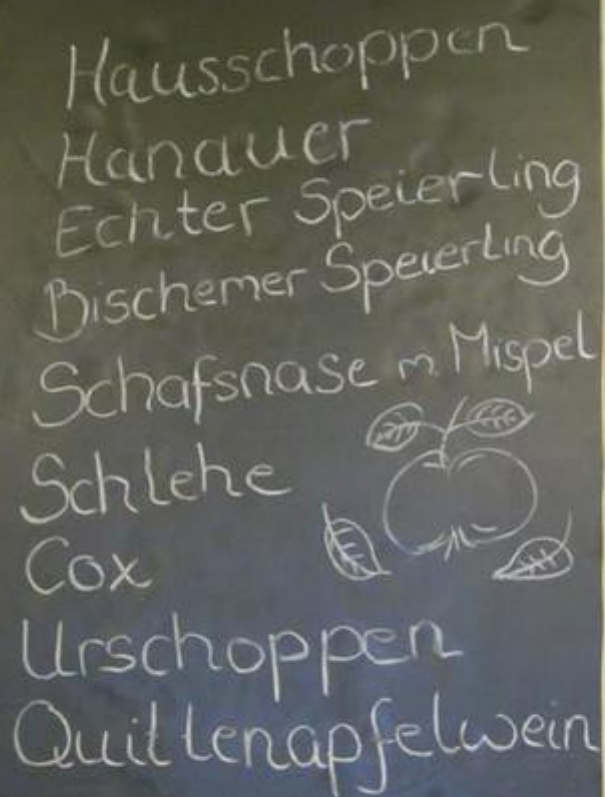 Hausschoppen
Hanauer
Echter Speierling
Bischemer Speierling
Schafsnase m. Mispel
Schlehe
Cox
Urschoppen
Quittenapfelwein